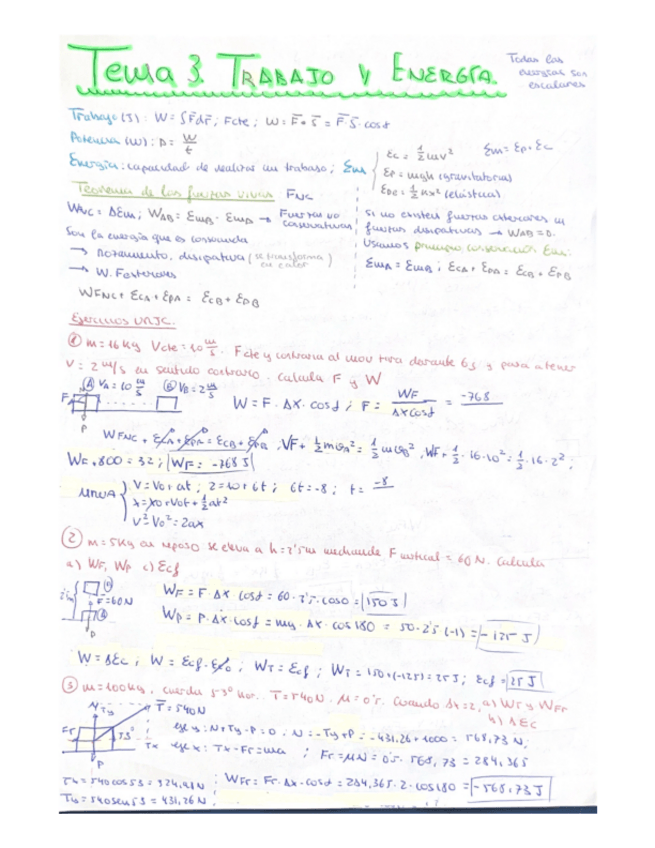 Tema 3. TRABAJO Y ENERGÍA.
Todas las energías son escalares
Trabajo (J): W = ∫F̄dr̄; Fcte; W = F̄ • s̄ = F̄·s̄·cosα
Potencia (W): P = W/t
Energía: capacidad de realizar un trabajo; Em
Ec = 1/2 mv²
Em = Ep + Ec
Ep = mgh (gravitatoria)
Epe = 1/2 kx² (elástica)
Teorema de las fuerzas vivas FNC
WFNC = ΔEm; WAB = EmB - EmA → Fuerzas no conservativas
Son la energía que es consumida
→ Rozamiento, disipativa (se transforma en calor)
→ W. Exteriores
WFNC + EcA + EpA = EcB + EpB
Si no existen fuerzas exteriores ni
fuerzas disipativas → WAB = 0.
Usamos principio conservación Em:
EmA = EmB; EcA + EpA = EcB + EpB
Ejercicios URJC.
① m = 16 Kg Vcte = 10 m/s. Fcte y contraria al mov tira durante 6 s y pasa a tener
V = 2 m/s en sentido contrario. Calcula F y W
Ⓐ VA = 10 m/s Ⓑ VB = 2 m/s
F
P
W = F · Δx · cosα; F = WF / Δx cosα = -768
WFNC + EcA + EpA = EcB + EpB; WF + 1/2 mvA² = 1/2 mvB²; WF + 1/2 · 16 · 10² = 1/2 · 16 · 2²;
WF + 800 = 32; WF = -768 J
MRUA
V = Vo + at; 2 = 10 + 6t; 6t = -8; t = -8
x = xo + Vot + 1/2 at²
V² - Vo² = 2ax
② m = 5 Kg en reposo se eleva a h = 2'5 m mediante F vertical = 60 N. Calcula
a) WF, WP c) Ecf
F = 60 N
P
WF = F · Δx · cosα = 60 · 2'5 · cos0 = 150 J
WP = P · Δx · cosα = mg · Δx · cos180 = 50 · 2'5 (-1) = -125 J
W = ΔEc; W = Ecf - Eco; WT = Ecf; WT = 150 + (-125) = 25 J; Ecf = 25 J
③ m = 100 Kg, cuerda 53° hor. T = 540 N. μ = 0'5. Cuando Δx = 2, a) WT y WFr
b) ΔEc
N Ty T̄ = 540 N
Fr 53° Tx
P
eje y: N + Ty - P = 0; N = -Ty + P = -431,26 + 1000 = 568,73 N;
eje x: Tx - Fr = ma; Fr = μN = 0'5 · 568,73 = 284,365
Tx = 540 cos53 = 324,98 N
Ty = 540 sen53 = 431,26 N
WFr = Fr · Δx · cosα = 284,365 · 2 · cos180 = -568,73 J